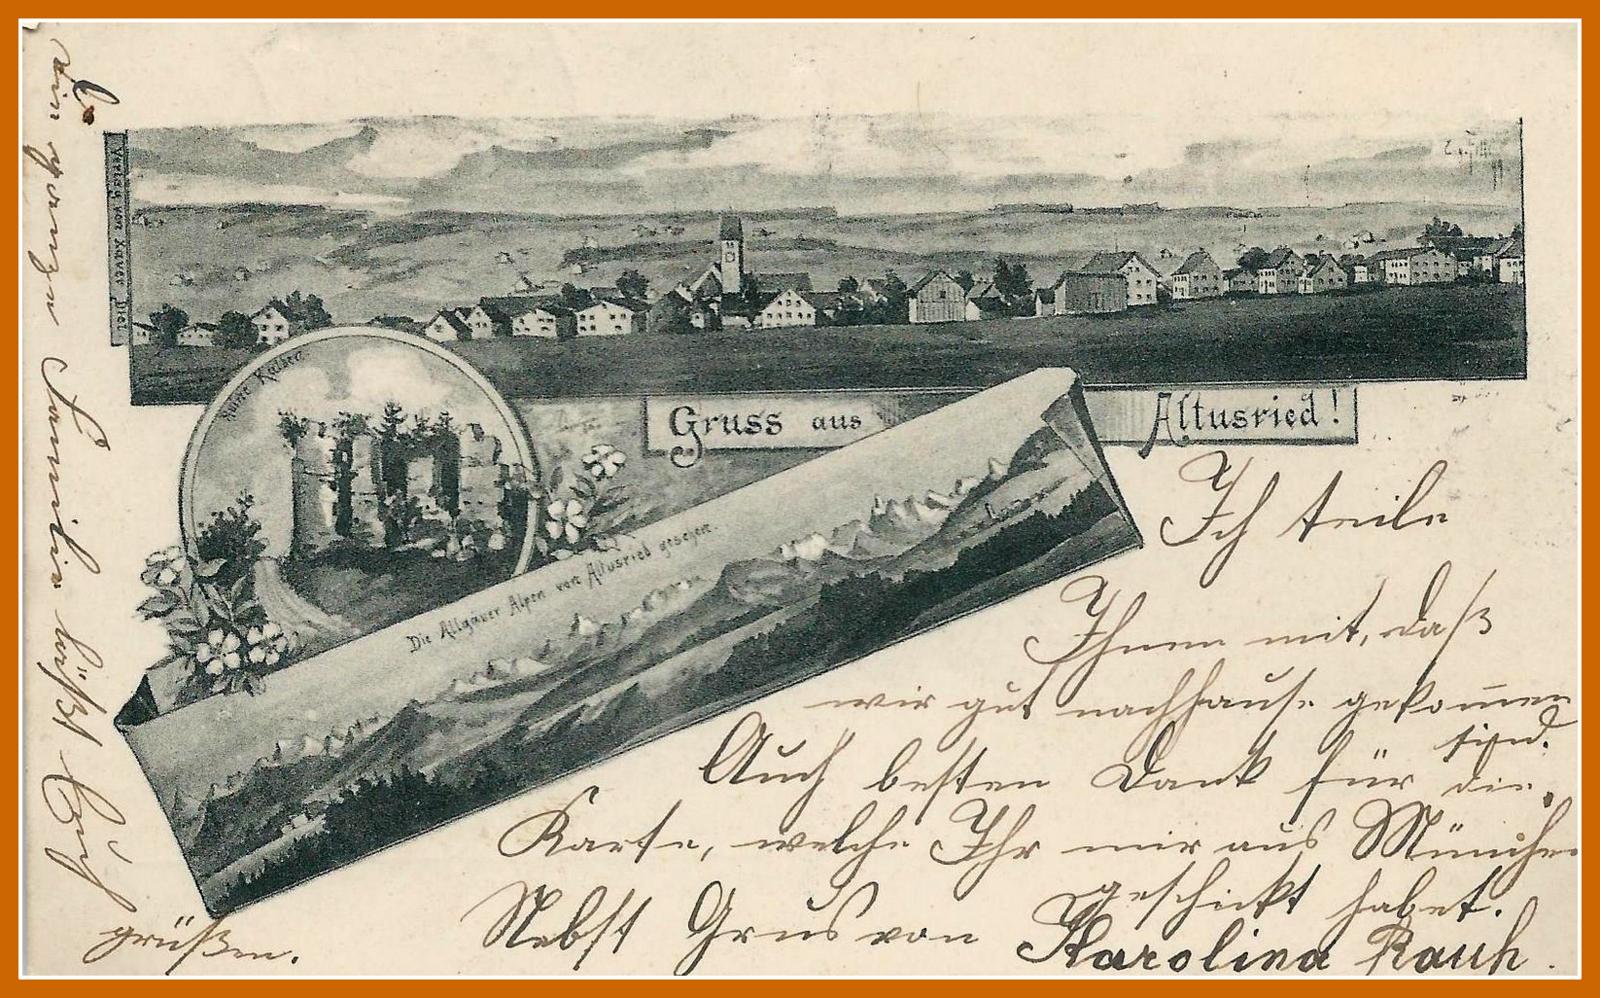 Verlag von Xaver Diet
Ruine Kalden.
Gruss aus Altusried!
Die Allgäuer Alpen von Altusried gesehen.
Ich teile
Ihnen mit, daß
wir gut nachhause gekom̄en
sind.
Auch besten Dank für die
Karte, welche Ihr mir aus Münche
geschickt habet.
Nebst Grus von Karolina Rauh.
Die ganze Familie läßt Euch
grüßen.